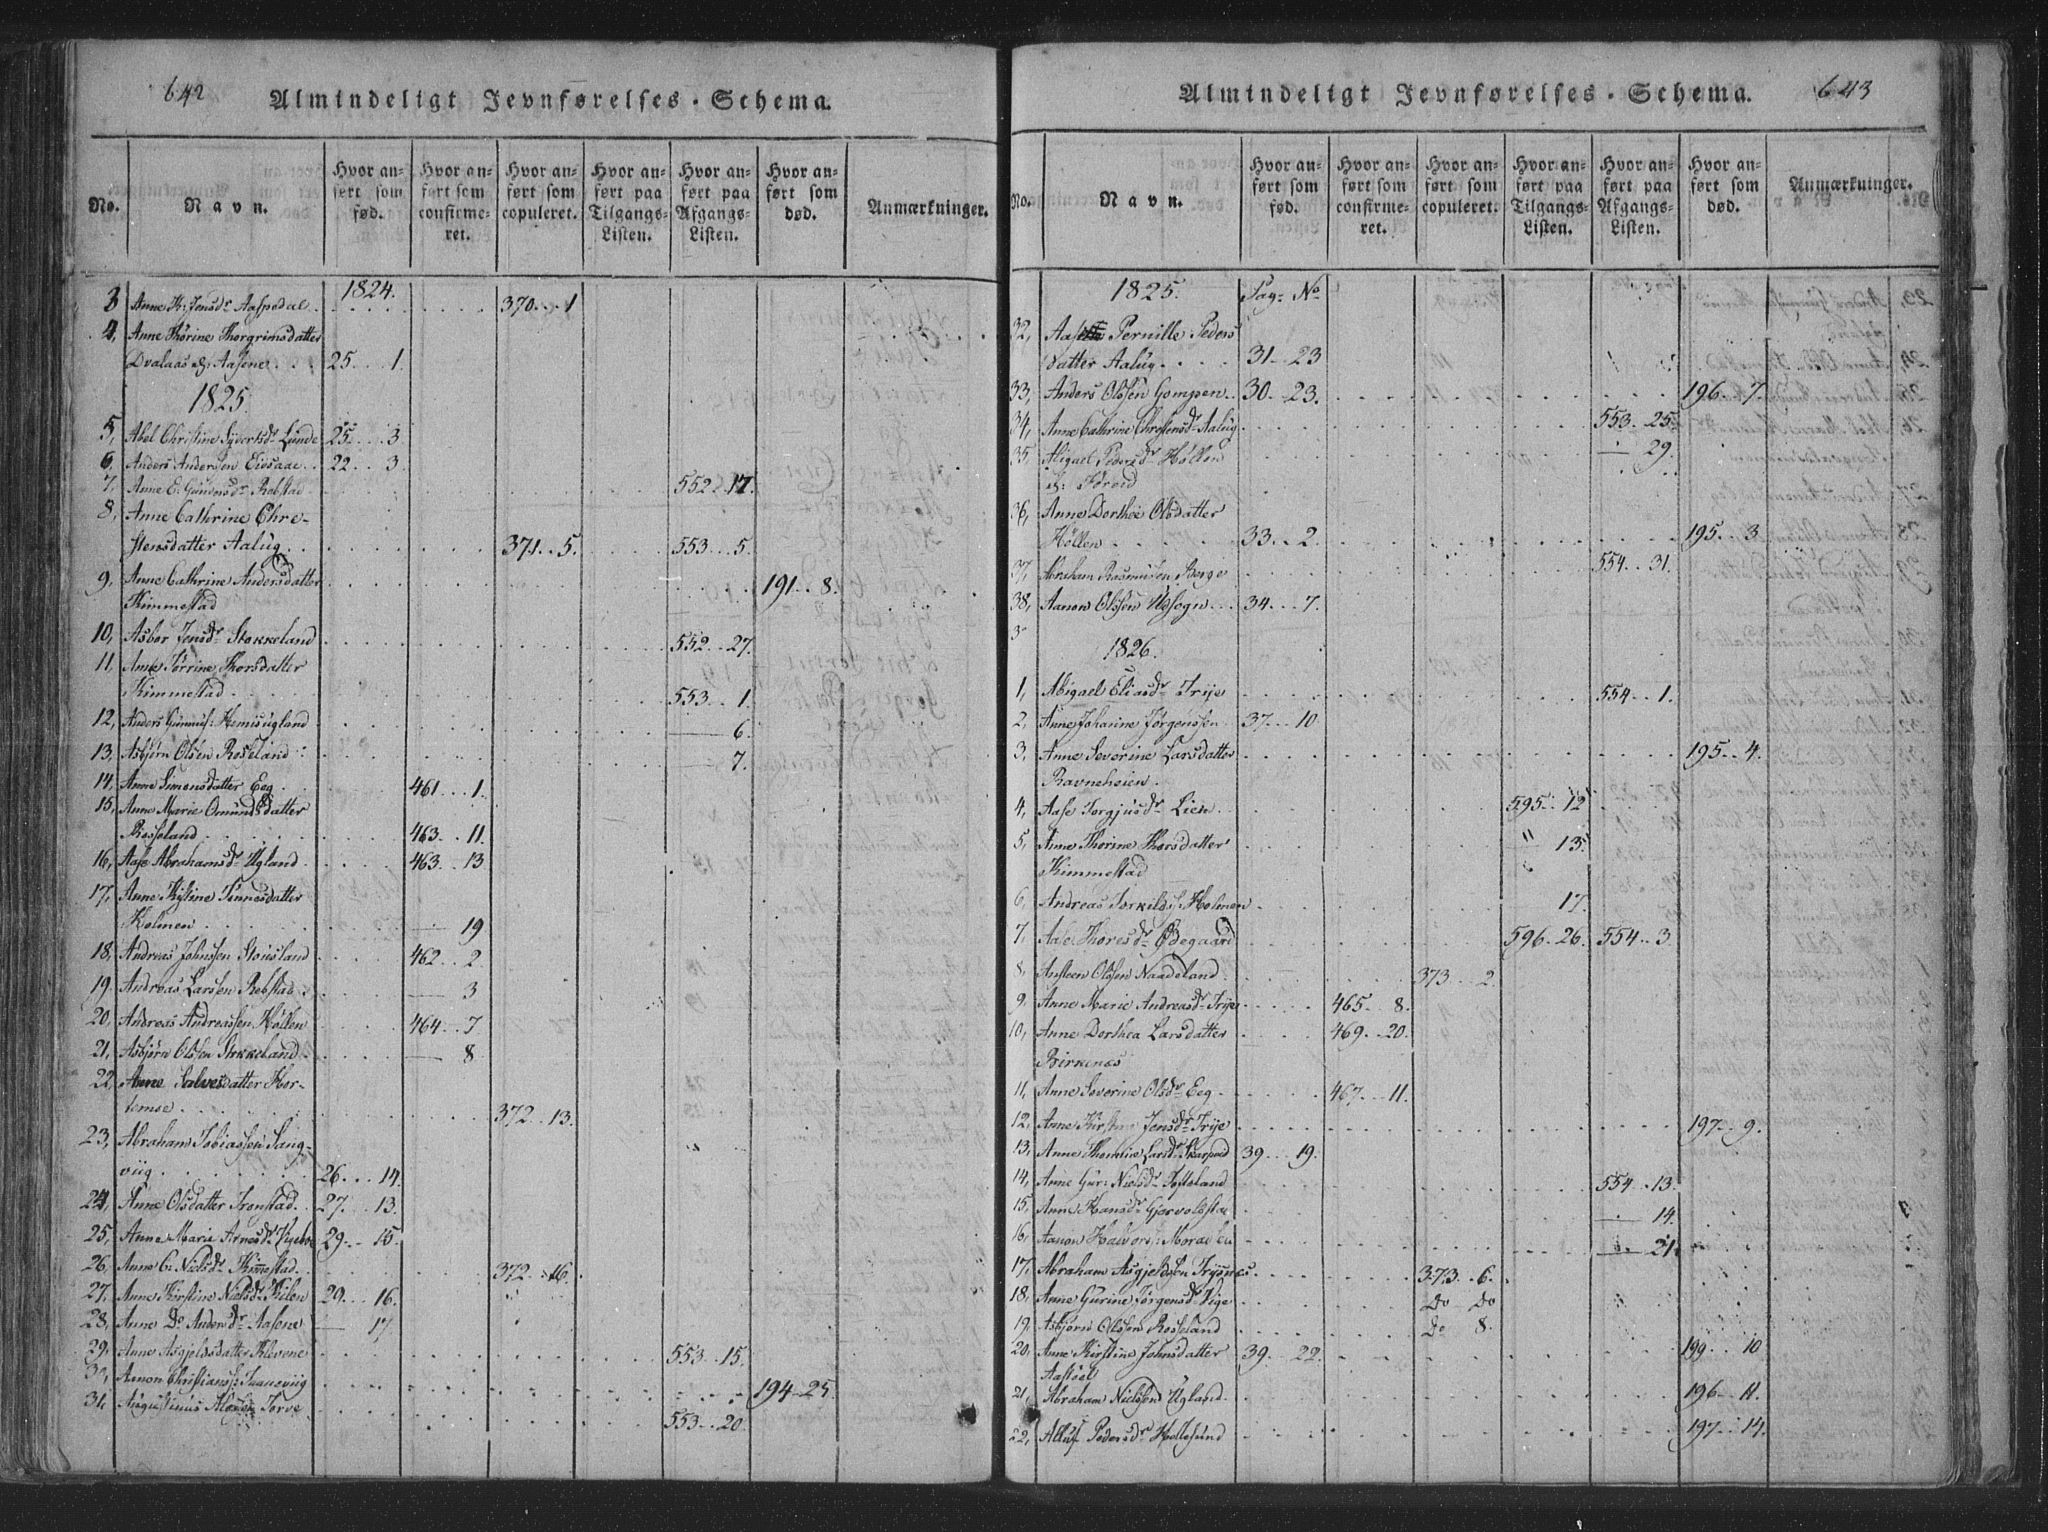 642
Almindeligt Jevnførelses-Schema.
No.
Navn.
Hvor anført som fød.
Hvor anført som confirmeret.
Hvor anført som copuleret.
Hvor anført paa Tilgangs-Listen.
Hvor anført paa Afgangs-Listen.
Hvor anført som død.
Anmærkninger.
1824.
3 Anne K: Jensdr Aaspedal 370 1
4, Anne Thorine Thorgrimsdatter
Dvalaas Aasene 25 1.
1825.
5, Abel Christine Syvertsdr Lunde 25 3
6, Anders Andersen Eidsaae 22 3
7, Anne E: Gundersdr Rebstad 552 17.
8, Anne Cathrine Chre-
stensdatter Aalug 371 5. 553 5.
9, Anne Cathrine Andersdatter 191 8.
Kimmestad
10, Asbor Jensdr Stokkeland 552 27.
11, Anne Torrine Thorsdatter
Kimmestad 553 1.
12, Anders Gunnufs: Hemisugland — 6.
13, Asbjørn Olsen Roseland — 7.
14, Anne Simensdatter Eeg 461 1.
15, Anne Marie Omundsdatter
Rosseland 463 11.
16, Aase Abrahamsdr Ugland 463 13
17, Anne Kistine Tønnesdatter
Holmen — 19
18, Andreas Johnsen Stousland 462 2.
19, Andreas Larsen Rebstad — 3
20, Andreas Andreassen Høllen 464 7
21, Asbjørn Olsen Stokkeland — 8
22, Anne Salvesdatter Hor-
temoe 372 13.
23, Abraham Tobiassen Lang-
viig 26 14.
24, Anne Olsdatter Tronstad 27. 13.
25, Anne Marie Arnesdr 29 15.
26, Anne C: Nielsdr Kimestad 372 16.
27, Anne Kirstine Nielsdr Kilen 29 16.
28, Anne Do Andersdr Aasene — 17
29, Anne Asgjeldsdatter Klevene 553 15.
30, Aanon Christians: 194 25.
31, Augustinus Torve 553 20.
643
Almindeligt Jevnførelses-Schema.
No.
Navn.
Hvor anført som fød.
Hvor anført som confirmeret.
Hvor anført som copuleret.
Hvor anført paa Tilgangs-Listen.
Hvor anført paa Afgangs-Listen.
Hvor anført som død.
Anmærkninger.
1825. Pag. No
32, Pernille Peders
datter Aalug 31 23
33, Anders Olsen Gompen 30 23. 196 7.
34, Anne Cathrine Chrestensdr Aalug 553 25.
35, Abigael Pedersdr Høllen — 29.
36, Anne Dorthee Olsdatter
Høllen 33 2. 195 3.
37, Abraham Rasmusen Berge 554 31.
38, Aanon Olsen Udsogn 34 7.
3
1826.
1, Abigael Eliasdr Trije 554 1.
2, Anne Johanne Jørgensen 37 10.
3, Anne Severine Larsdatter 195 4.
Ravneheien
4, Aase Torgjusdr Lien 595 12
5, Anne Thorine Thorsdatter " 13.
Kimmestad
6, Andreas Torkilds: Holmen 17.
7, Aase Thoresdr Ødegaard 596 26. 554 3.
8, Ansteen Olsen Naadeland 373 2.
9, Anne Marie Andreasdr Trije 465 8.
10, Anne Dorthea Larsdatter 469 20.
Birkenes
11, Anne Severine Olsdr Eeg 467 11.
12, Anne Kirstine Jensdr Trije 197 9.
13, Anne Thomine Larsdr 39 19.
14, Anne Gur: Nielsdr Tofteland 554 13.
15, Anne Hansdr Gjervoldstad — 14.
16, Aanon Halvors: — 21.
17, Abraham Asgjeldsen Trysnes 373 6.
18, Anne Gurine Jørgensdr Vige Do Do
19, Asbjørn Olsen Rosseland Do 8.
20, Anne Kirstine Johnsdatter 39 22. 199 10
21, Abraham Nielsen Ugland 196 11.
22, Pedersdr Hellesund 197 14.